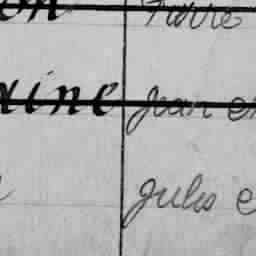 on Pierre
aine Jean e
Jules e